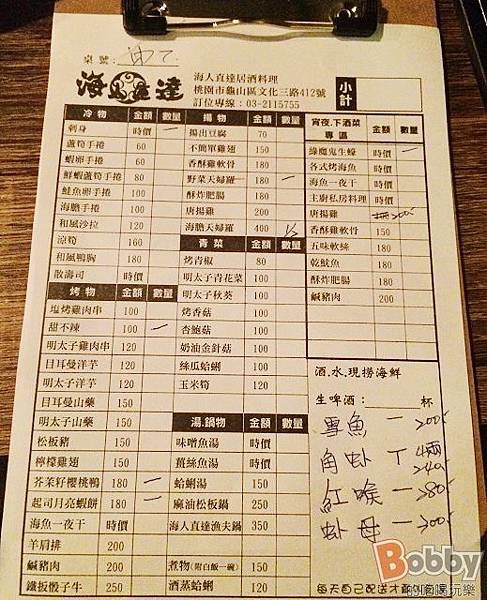 桌號:
海人直達
海人直達居酒料理
桃園市龜山區文化三路412號
訂位專線：03-2115755
小計
冷物 金額 數量
刺身 時價 一
蘆筍手捲 60
蝦卵手捲 60
鮮蝦蘆筍手捲 80
鮭魚卵手捲 100
海膽手捲 100
和風沙拉 120
涼筍 160
和風鴨胸 180
散壽司 時價
烤物 金額 數量
塩烤雞肉串 100
甜不辣 100 一
明太子雞肉串 120
目耳曼洋芋 120
明太子洋芋 120
目耳曼山藥 150
明太子山藥 150
松板豬 150
檸檬雞翅 150
芥茉籽櫻桃鴨 180 一
起司月亮蝦餅 180 一
海魚一夜干 時價
羊肩排 200
鹹豬肉 200
鐵扳骰子牛 250
揚物 金額 數量
揚出豆腐 70
不簡單雞翅 150
香酥雞軟骨 180
野菜天婦羅 180 一
酥炸肥腸 180
唐揚雞 200
海膽天婦羅 400
青菜 金額 數量
烤青椒 80
明太子青花菜 100
明太子秋葵 100
烤香菇 100
杏鮑菇 100
奶油金針菇 100
絲瓜蛤蜊 100
玉米筍 120
湯.鍋物 金額 數量
味噌魚湯 時價
薑絲魚湯 時價
蛤蜊湯 150
麻油松板鍋 250
海人直達漁夫鍋 350
煮物(附白飯一碗) 150
酒蒸蛤蜊 120
宵夜.下酒菜專區 金額 數量
綠魔鬼生蠔 時價 一
各式烤海魚 時價
海魚一夜干 時價
主廚私房料理 時價
唐揚雞
香酥雞軟骨 150
五味軟絲 180
乾魷魚 180
酥炸肥腸 180
鹹豬肉 200
酒.水.現撈海鮮
生啤酒： 杯
雪魚 一 200
角虾 4兩 240
紅喉 一 280
虾母 一 200
每天自己配送才
Bobby
的吃喝玩樂